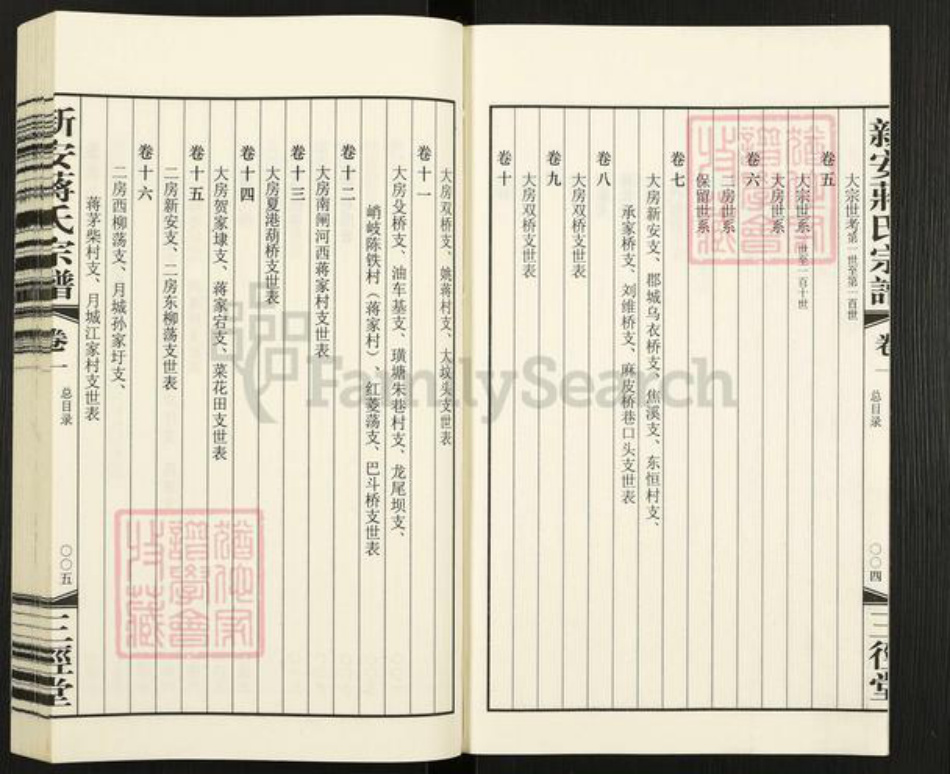 新安蔣氏宗譜 卷一 总目录 〇〇四 三徑堂
大宗世考第一世至第一百世
卷五
大宗世系一世至一百十世
大房世系
卷六
二房世系
保留世系
卷七
大房新安支、郡城乌衣桥支、焦溪支、东恒村支、
承家桥支、刘维桥支、麻皮桥巷口头支世表
卷八
大房双桥支世表
卷九
大房双桥支世表
卷十
大房双桥支世表、姚蒋村支、大坟头支世表
卷十一
大房殳桥支、油车基支、璜塘朱巷村支、龙尾坝支、
峭岐陈铁村（蒋家村）、红菱荡支、巴斗桥支世表
卷十二
大房南闸河西蒋家村支世表
卷十三
大房夏港葫桥支世表
卷十四
大房贺家埭支、蒋家宕支、菜花田支世表
卷十五
二房新安支、二房东柳荡支世表
卷十六
二房西柳荡支、月城孙家圩支、
蒋茅柴村支、月城江家村支世表
新安蔣氏宗譜 卷一 总目录 〇〇五 三徑堂
FamilySearch